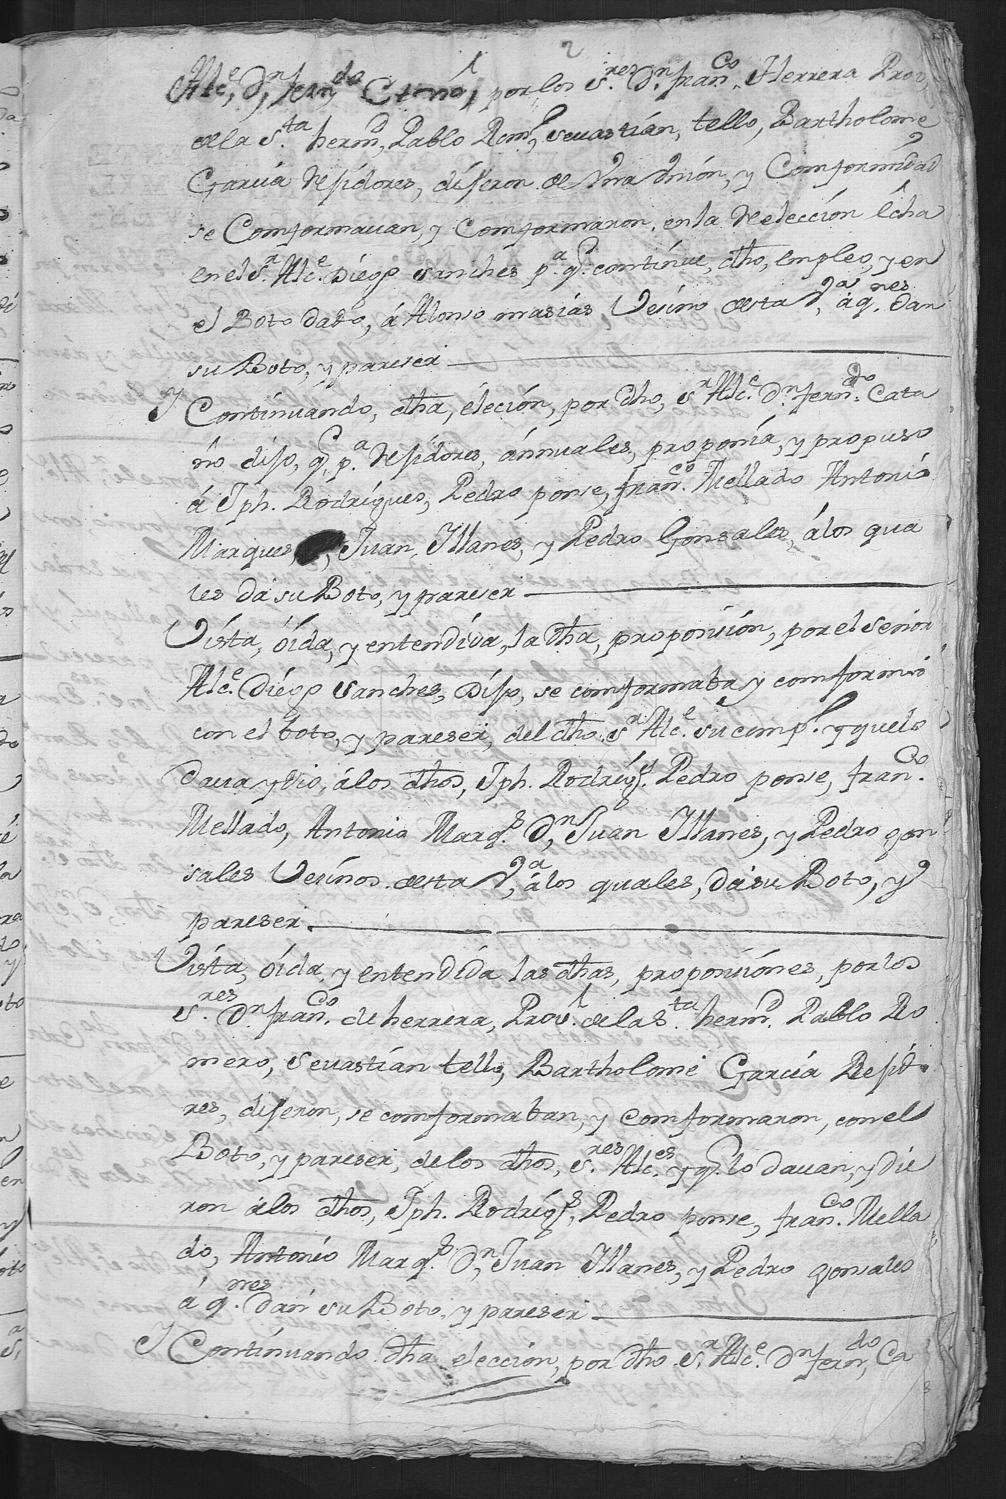 2
Alc.e D.n fern.do Ctano, por los S.res D.n fran.co Herrera Prov.l
de la S.ta herm.d, Pablo Rom.o, Sevastián, tello, Bartholome
Garcia Residores, diseron de Vna Vnión, y Comformidad
se Comformavan, y Comformaron, en la Reelección hcha
en el S.r Alc.e Diego Sanches p.a q.e continúe, dho, empleo, y en
el Boto dado, á Alonso masias Vesino desta V.a, á q.nes dan
su Boto, y pareser
Y Continuando, dha, eleción, por dho, S.r Alc.e D.n fern.do Cata
ño diso, q.e p.a Residores, ánnuales, proponía, y propuso
á Jph. Rodrigues, Pedro ponse, fran.co Mellado Antonio
Marques, Juan, Illanes, y Pedro Gonsales, á los qua
les da su Boto, y pareser
Vista, óida, y entendíva, la dha, proposisión, por el Señor
Alc.e Diego Sanches, Diso, se comformaba y comformó
con el boto, y pareser, del dho, S.r Alc.e su comp.o y q.e selo
dava y dio, á los dhos, Jph. Rodríg.s Pedro ponse, fran.co
Mellado, Antonio Marq.s D.n Juan Illanes, y Pedro gon
sales Vesinos desta V.a, á los quales, da su Boto, y
pareser.
Vista, óida y entendída las dhas, proposisiónes, por los
S.res D.n fran.co de herrera, Prov.l de la S.ta herm.d Pablo Ro
mero, Sevastián tello, Bartholome Garcia Resido
res, diseron, se comformaban, y comformaron, con el
Boto, y pareser, de los dhos, S.res Alc.es y q.e lo davan, y die
ron á los dhos, Jph. Rodríg.s, Pedro ponse, fran.co Mella
do, Antonio Marq.s D.n Juan Illanes, y Pedro gonsales
á q.nes dan su Boto, y pareser
Y Continuando dha elección, por dho S.r Alc.e D.n fern.do Ca